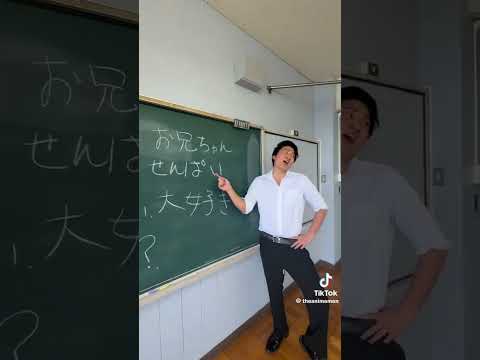 お兄ちゃん
せんぱい
大好き
?
TikTok
@theanimeman